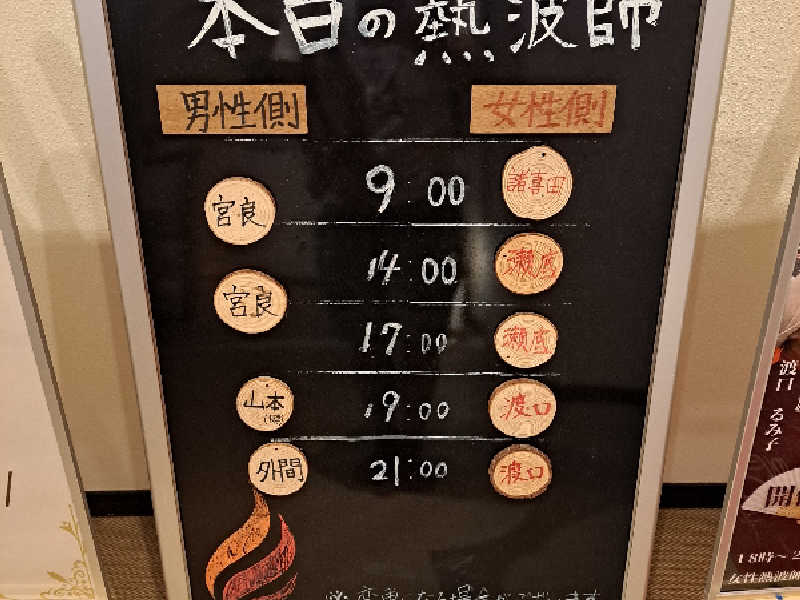 本日の熱波師
男性側 女性側
宮良 9:00 諸喜田
宮良 14:00 瀬底
17:00 瀬底
山本 19:00 渡口
外間 21:00 渡口
※変更になる場合がございます
渡口 るみ子
開
18時～2
女性熱波師